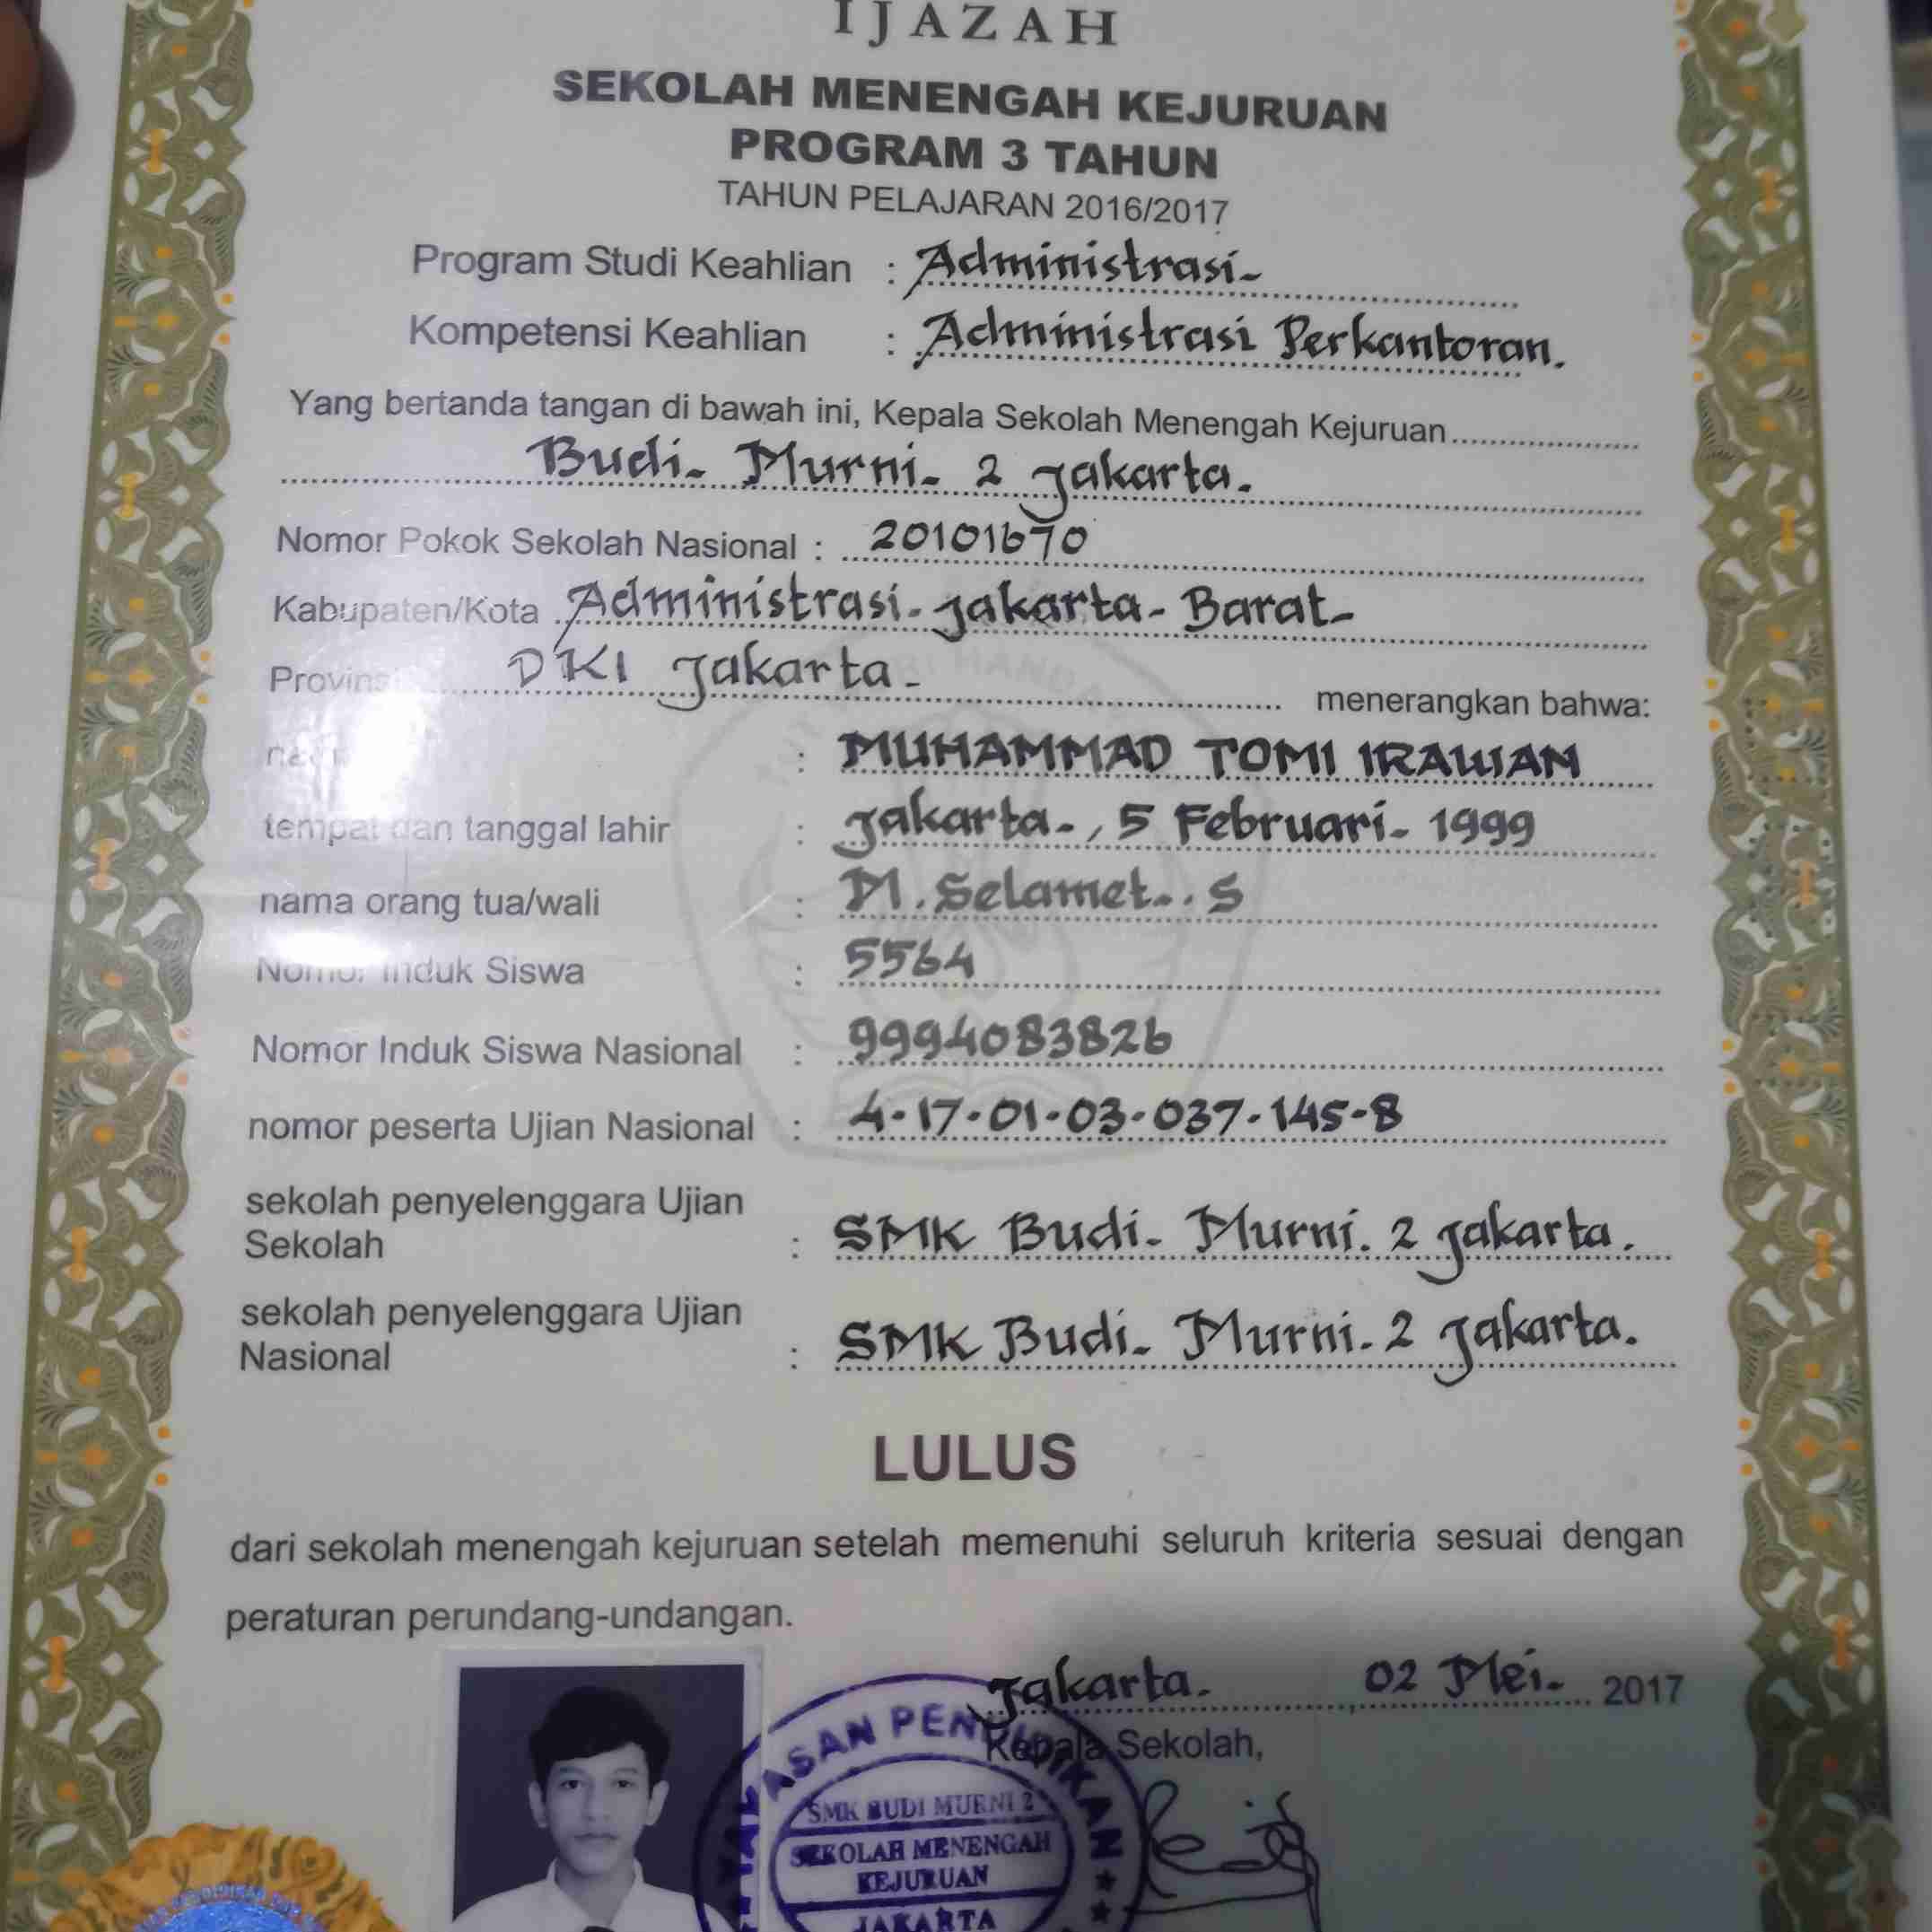 IJAZAH
SEKOLAH MENENGAH KEJURUAN
PROGRAM 3 TAHUN
TAHUN PELAJARAN 2016/2017
Program Studi Keahlian : Administrasi-
Kompetensi Keahlian : Administrasi Perkantoran.
Yang bertanda tangan di bawah ini, Kepala Sekolah Menengah Kejuruan
Budi- Murni- 2 Jakarta.
Nomor Pokok Sekolah Nasional : 20101670
Kabupaten/Kota Administrasi- Jakarta- Barat-
Provinsi DKI Jakarta- menerangkan bahwa:
: MUHAMMAD TOMI IRAWAN
tempat dan tanggal lahir : Jakarta-, 5 Februari- 1999
nama orang tua/wali : M. Selamet-. S
Nomor Induk Siswa : 5564
Nomor Induk Siswa Nasional : 9994083826
nomor peserta Ujian Nasional : 4-17-01-03-037-145-8
sekolah penyelenggara Ujian
Sekolah : SMK Budi- Murni. 2 Jakarta.
sekolah penyelenggara Ujian
Nasional : SMK Budi- Murni- 2 Jakarta.
LULUS
dari sekolah menengah kejuruan setelah memenuhi seluruh kriteria sesuai dengan
peraturan perundang-undangan.
Jakarta. , 02 Mei- 2017
Kepala Sekolah,
YAYASAN PENDIDIKAN
SMK BUDI MURNI 2
SEKOLAH MENENGAH
KEJURUAN
JAKARTA